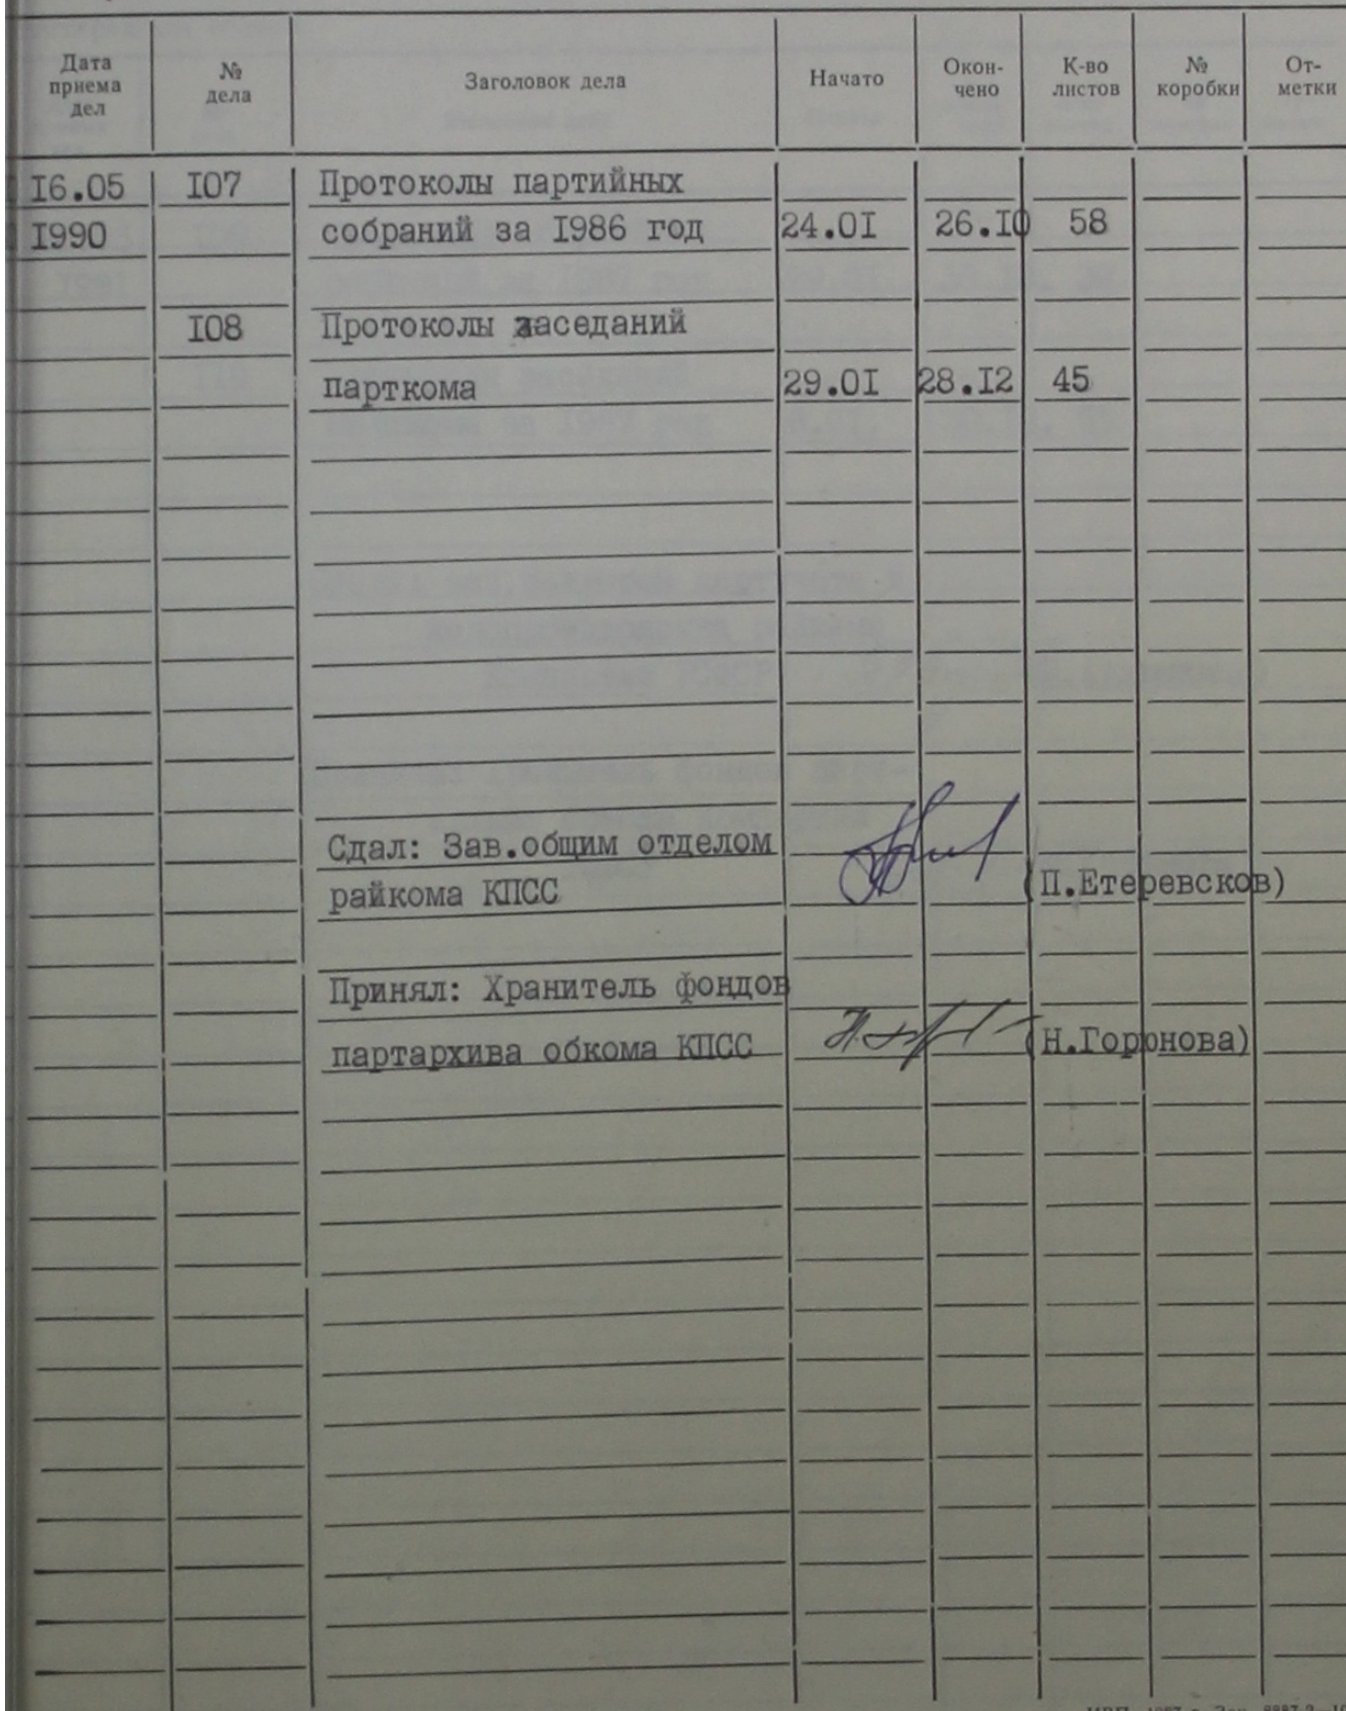 Дата приема дел | № дела | Заголовок дела | Начато | Окон- чено | К-во листов | № коробки | От- метки
I6.05 | I07 | Протоколы партийных
I990 | собраний за I986 год | 24.0I | 26.I0 | 58
I08 | Протоколы заседаний
парткома | 29.0I | 28.I2 | 45
Сдал: Зав.общим отделом
райкома КПСС (П.Етеревсков)
Принял: Хранитель фондов
партархива обкома КПСС (Н.Горюнова)